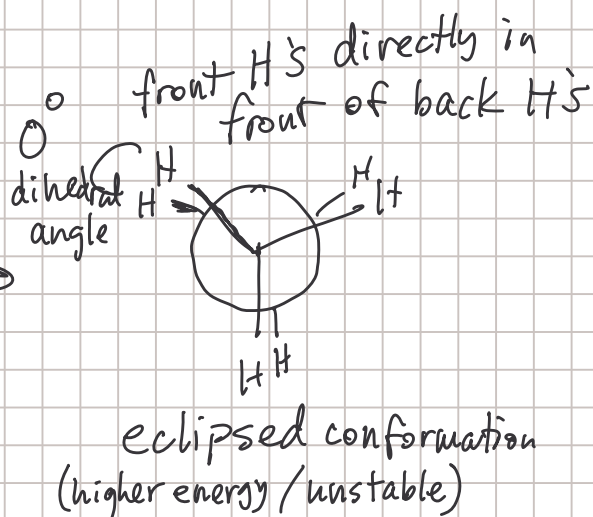 front H's directly in
front of back H's
0°
dihedral
angle
H
H
H
H
H H
eclipsed conformation
(higher energy / unstable)